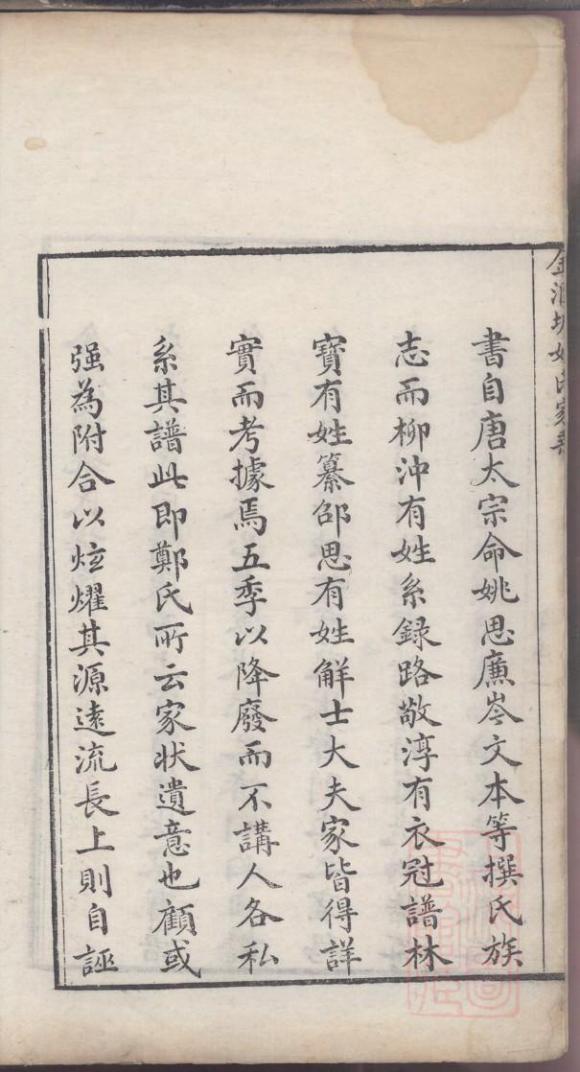 書自唐太宗命姚思廉岑文本等撰氏族
志而柳沖有姓系錄路敬淳有衣冠譜林
寶有姓纂邵思有姓解士大夫家皆得詳
實而考據焉五季以降廢而不講人各私
系其譜此即鄭氏所云家狀遺意也顧或
强為附合以炫燿其源遠流長上則自誣